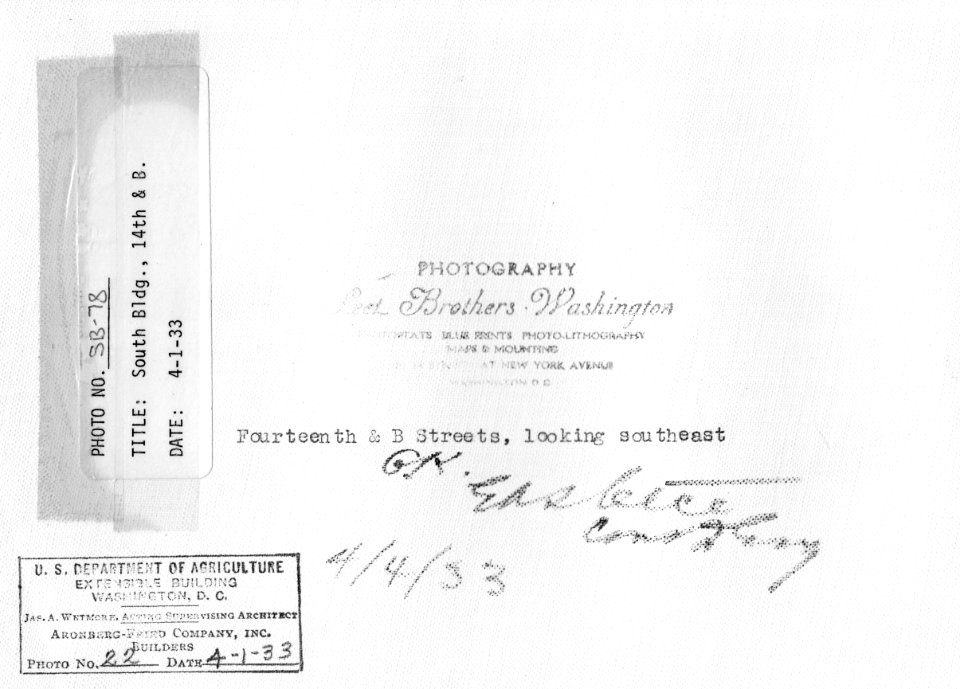 PHOTO NO. SB-78
TITLE: South Bldg., 14th & B.
DATE: 4-1-33
PHOTOGRAPHY
Brothers Washington
BLUE PRINTS PHOTO-LITHOGRAPHY
MAPS & MOUNTING
AT NEW YORK AVENUE
WASHINGTON D C
Fourteenth & B Streets, looking southeast
OK.
Const Engr
4/4/33
U. S. DEPARTMENT OF AGRICULTURE
EXTENSIBLE BUILDING
WASHINGTON, D. C.
JAS. A. WETMORE, ACTING SUPERVISING ARCHITECT
ARONBERG-FRIED COMPANY, INC.
BUILDERS
PHOTO NO. 22 DATE 4-1-33